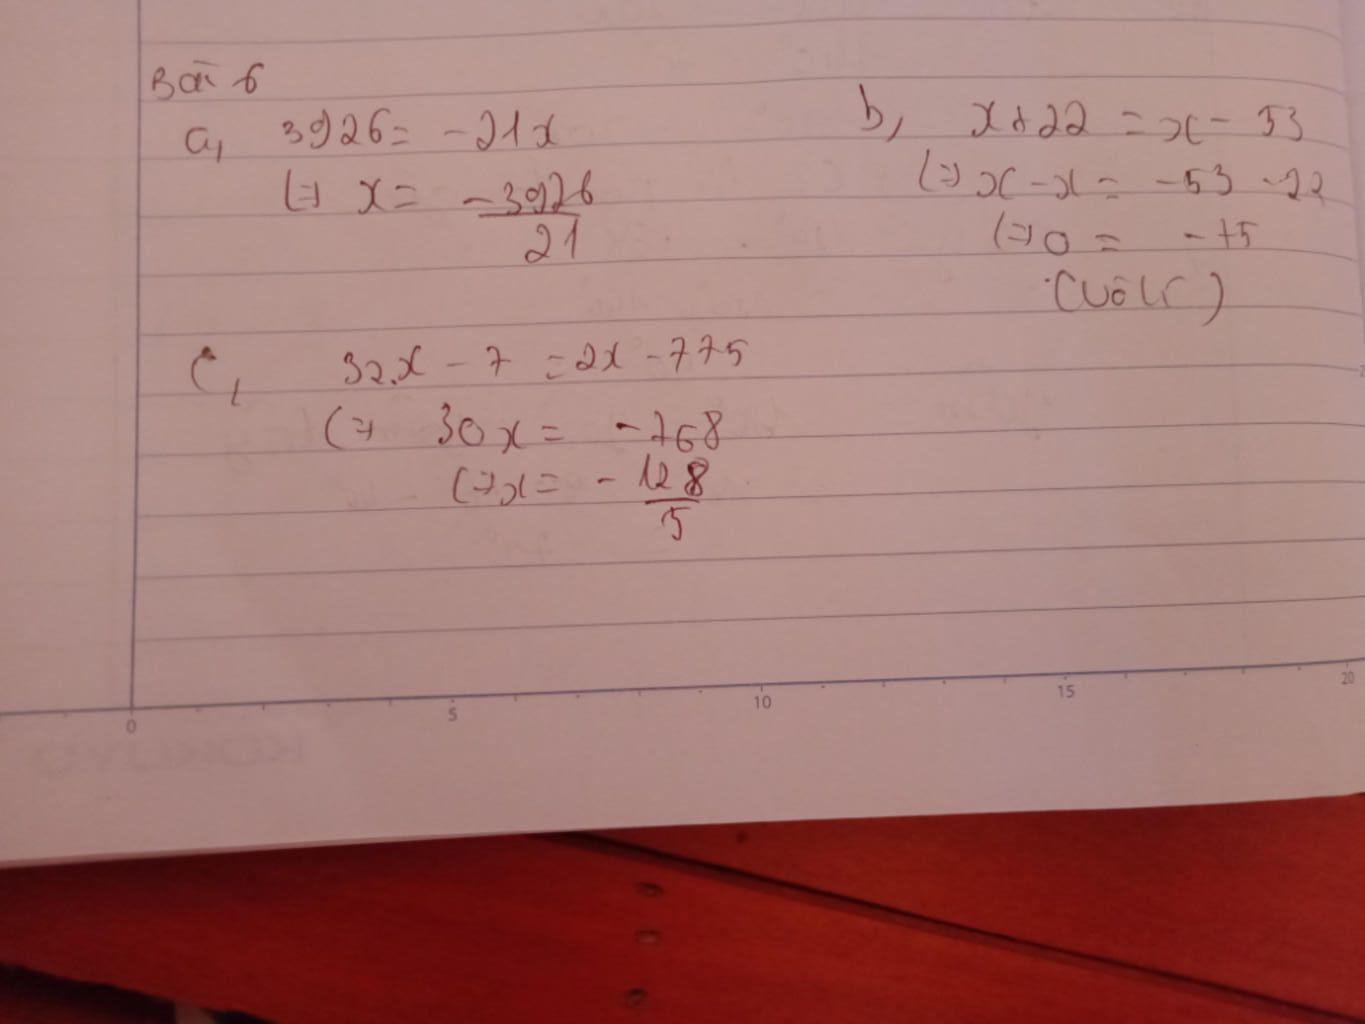 Bài 6
a, 3926 = -21x
(=) x = -3926/21
b, x + 22 = x - 53
(=) x - x = -53 - 22
(=) 0 = -75
(Vô lí)
c, 32.x - 7 = 2x - 775
(=) 30x = -768
(=) x = - 128/5
0 5 10 15 20
KOKUYO